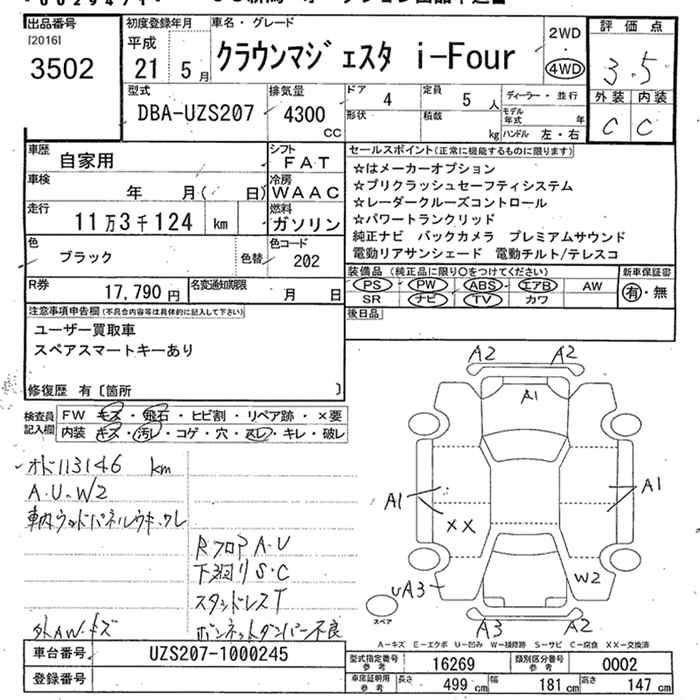 出品番号
[2016]
3502
初度登録年月
平成
21年 5月
車名・グレード
クラウンマジェスタ i-Four
2WD
・
4WD
評価点
3.5
外装 内装
C C
型式
DBA-UZS207
排気量
4300
CC
ドア 4
形状
定員 5 人
積載 kg
ディーラー・並行
モデル年式 年
ハンドル 左・右
車歴
自家用
シフト
FAT
車検
年 月( 日)
冷房
WAAC
走行
11万3千124 km
燃料
ガソリン
色
ブラック
色替
色コード
202
R券
17,790円
名変通知期限
月 日
セールスポイント(正常に機能するものに限ります)
☆はメーカーオプション
☆プリクラッシュセーフティシステム
☆レーダークルーズコントロール
☆パワートランクリッド
純正ナビ バックカメラ プレミアムサウンド
電動リアサンシェード 電動チルト/テレスコ
装備品 (純正品に限り○をつけてください)
PS PW ABS エアB AW
SR ナビ TV カワ
新車保証書
有・無
後日品
注意事項申告欄(不具合内容等は具体的に記入して下さい)
ユーザー買取車
スペアスマートキーあり
修復歴 有 〔箇所 〕
検査員記入欄
FW キズ・飛石・ヒビ割・リペア跡・×要
内装 キズ・汚レ・コゲ・穴・スレ・キレ・破レ
オド113146 km
A.U.W2
車内ウッドパネルウキ.ワレ
Rフロア A.U
下廻り S.C
スタッドレスT
外AW.キズ
ボンネットダンパー不良
A2 A2
A1
A1
A1
XX
W2
UA3
A3 A2
スペア
A-キズ E-エクボ U-凹み W-補修跡 S-サビ C-腐食 XX-交換済
車台番号
UZS207-1000245
登録番号
型式指定番号
参考
16269
類別区分番号
参考
0002
車庫証明用
参考
長さ 499 cm
幅 181 cm
高さ 147 cm